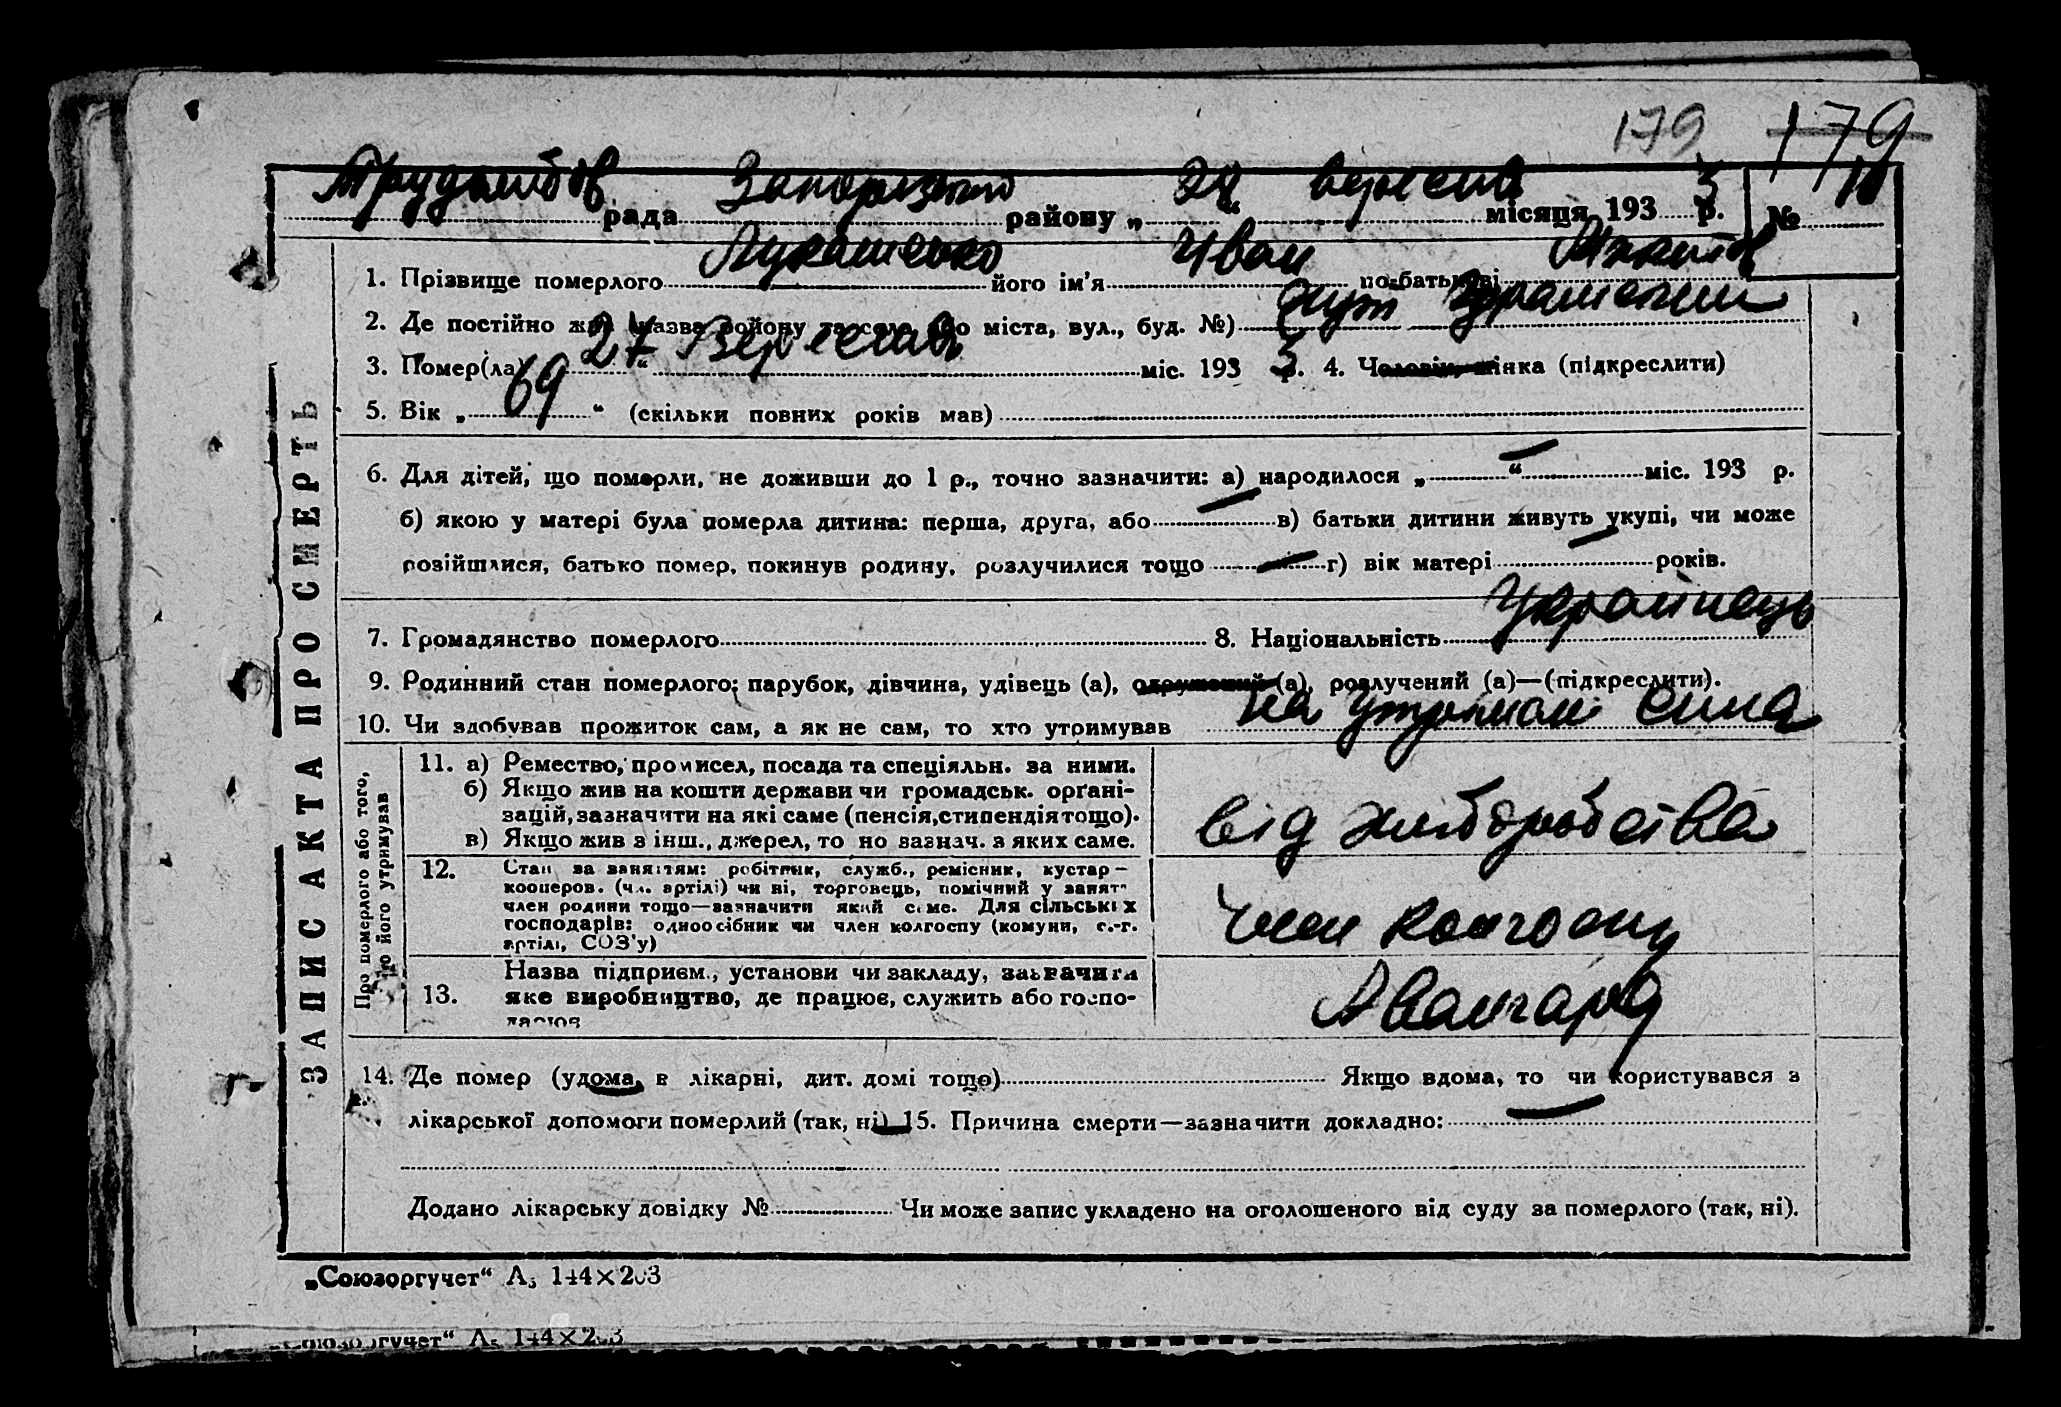 179 179
Трудлюбов рада Запорізько району „ 28 “ вересня місяця 193 3 р. № 10
1. Прізвище померлого Лукашенко його ім'я Иван по-батькові Микитов
2. Де постійно жив (назва району та села або міста, вул., буд. №)
3. Помер(ла) 27 Вересня міс. 193 3 р. 4. Чоловік, жінка (підкреслити)
5. Вік „ 69 “ (скільки повних років мав)
6. Для дітей, що померли, не доживши до 1 р., точно зазначити: а) народилося „ — “ міс. 193 р.
б) якою у матері була померла дитина: перша, друга, або — в) батьки дитини живуть укупі, чи може
розійшлися, батько помер, покинув родину, розлучилися тощо — г) вік матері — років.
7. Громадянство померлого 8. Національність Українець
9. Родинний стан померлого: парубок, дівчина, удівець (а), одружений (а), розлучений (а)—(підкреслити).
10. Чи здобував прожиток сам, а як не сам, то хто утримував на утриман сина
ЗАПИС АКТА ПРО СМЕРТЬ
Про померлого або того, хто його утримував
11. а) Ремество, промисел, посада та спеціяльн. за ними.
б) Якщо жив на кошти держави чи громадськ. орґані-
зацій, зазначити на які саме (пенсія, стипендія тощо).
в) Якщо жив з інш., джерел, то но зазнач. з яких саме.
від хліборобства
12. Стан за заняттям: робітник, служб., ремісник, кустар—
кооперов. (чл. артілі) чи ні, торговець, помічний у занят-
член родини тощо—зазначити який саме. Для сільських
господарів: одноосібник чи член колгоспу (комуни, с.-г.
артілі, СОЗ'у)
член колгоспу
13. Назва підприєм., установи чи закладу, зазначити
яке виробництво, де працює, служить або госпо-
дарює
Авангард
14. Де помер (удома, в лікарні, дит. домі тощо) Якщо вдома, то чи користувався з
лікарської допомоги померлий (так, ні) 15. Причина смерти—зазначити докладно: —
Додано лікарську довідку № Чи може запис укладено на оголошеного від суду за померлого (так, ні).
„Союзоргучет“ А5 144×203
Союзоргучет“ А5 144×203